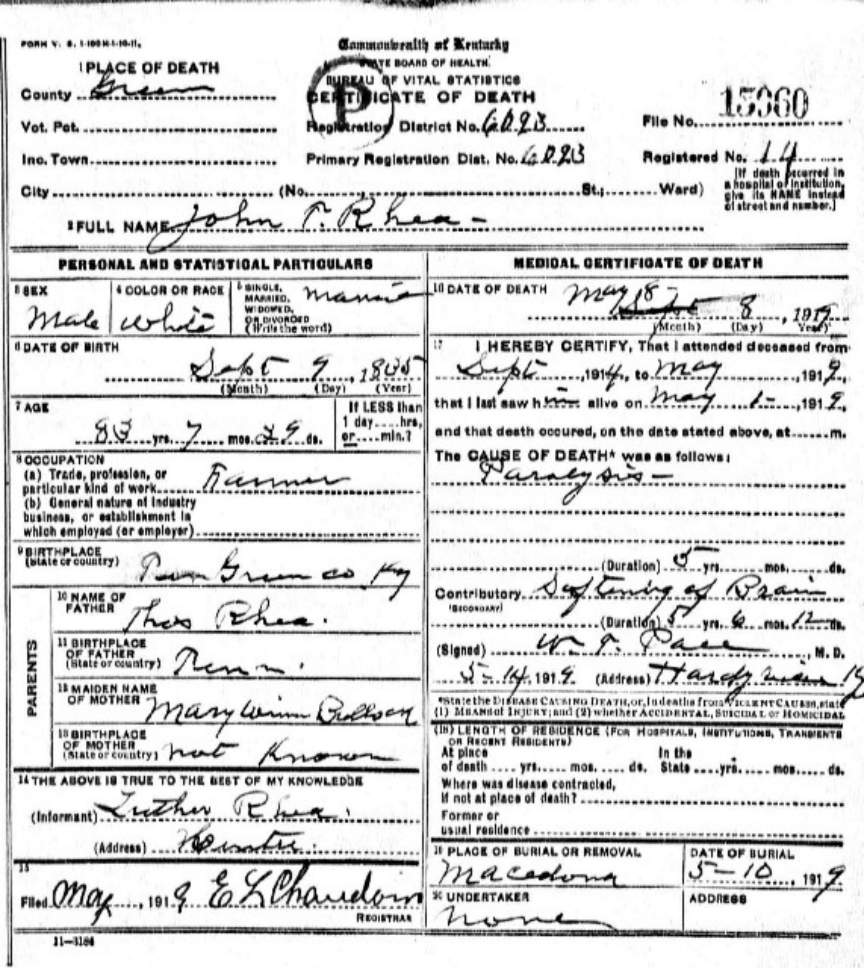 FORM V. S. 1-100M-1-10-11.
Commonwealth of Kentucky
STATE BOARD OF HEALTH.
BUREAU OF VITAL STATISTICS
CERTIFICATE OF DEATH
P
1 PLACE OF DEATH
County Green
Vot. Pct.
Inc. Town
City (No. St.; Ward)
Registration District No. 6093
Primary Registration Dist. No. 6093
File No. 15960
Registered No. 14
[If death occurred in
a hospital or institution,
give its NAME instead
of street and number.]
2 FULL NAME John T. Rhea -
PERSONAL AND STATISTICAL PARTICULARS
3 SEX
Male
4 COLOR OR RACE
White
5 SINGLE,
MARRIED,
WIDOWED,
OR DIVORCED
(Write the word)
6 DATE OF BIRTH
Sept 9, 1835
(Month) (Day) (Year)
7 AGE
83 yrs. 7 mos. 29 ds.
If LESS than
1 day....hrs,
or....min.?
8 OCCUPATION
(a) Trade, profession, or
particular kind of work Farmer
(b) General nature of industry
business, or establishment in
which employed (or employer)
9 BIRTHPLACE
(State or country) Green co Ky
PARENTS
10 NAME OF
FATHER
Thos Rhea.
11 BIRTHPLACE
OF FATHER
(State or country) Tenn.
12 MAIDEN NAME
OF MOTHER
Mary
13 BIRTHPLACE
OF MOTHER
(State or country) not Known
14 THE ABOVE IS TRUE TO THE BEST OF MY KNOWLEDGE
(Informant) Luther Rhea.
(Address)
15
Filed May, 1919 E L Chaudoin
REGISTRAR
11-3184
MEDICAL CERTIFICATE OF DEATH
16 DATE OF DEATH
May 8, 1919
(Month) (Day) (Year)
17 I HEREBY CERTIFY, That I attended deceased from
Sept, 1914, to May, 1919,
that I last saw him alive on May 1-, 1919,
and that death occured, on the date stated above, at m.
The CAUSE OF DEATH* was as follows:
Paralysis -
(Duration) 5 yrs. mos. ds.
Contributory Softening of Brain
(SECONDARY)
(Duration) 5 yrs. 6 mos. 12 ds.
(Signed) W. T. Pace, M. D.
5-14, 1919 (Address)
*State the DISEASE CAUSING DEATH, or, in deaths from VIOLENT CAUSES, state
(1) MEANS of INJURY; and (2) whether ACCIDENTAL, SUICIDAL or HOMICIDAL
(18) LENGTH OF RESIDENCE (FOR HOSPITALS, INSTITUTIONS, TRANSIENTS
OR RECENT RESIDENTS)
At place In the
of death .... yrs. .... mos. .... ds. State .... yrs. .... mos. .... ds.
Where was disease contracted,
if not at place of death?
Former or
usual residence
19 PLACE OF BURIAL OR REMOVAL
Macedona
DATE OF BURIAL
5-10, 1919
20 UNDERTAKER
none
ADDRESS